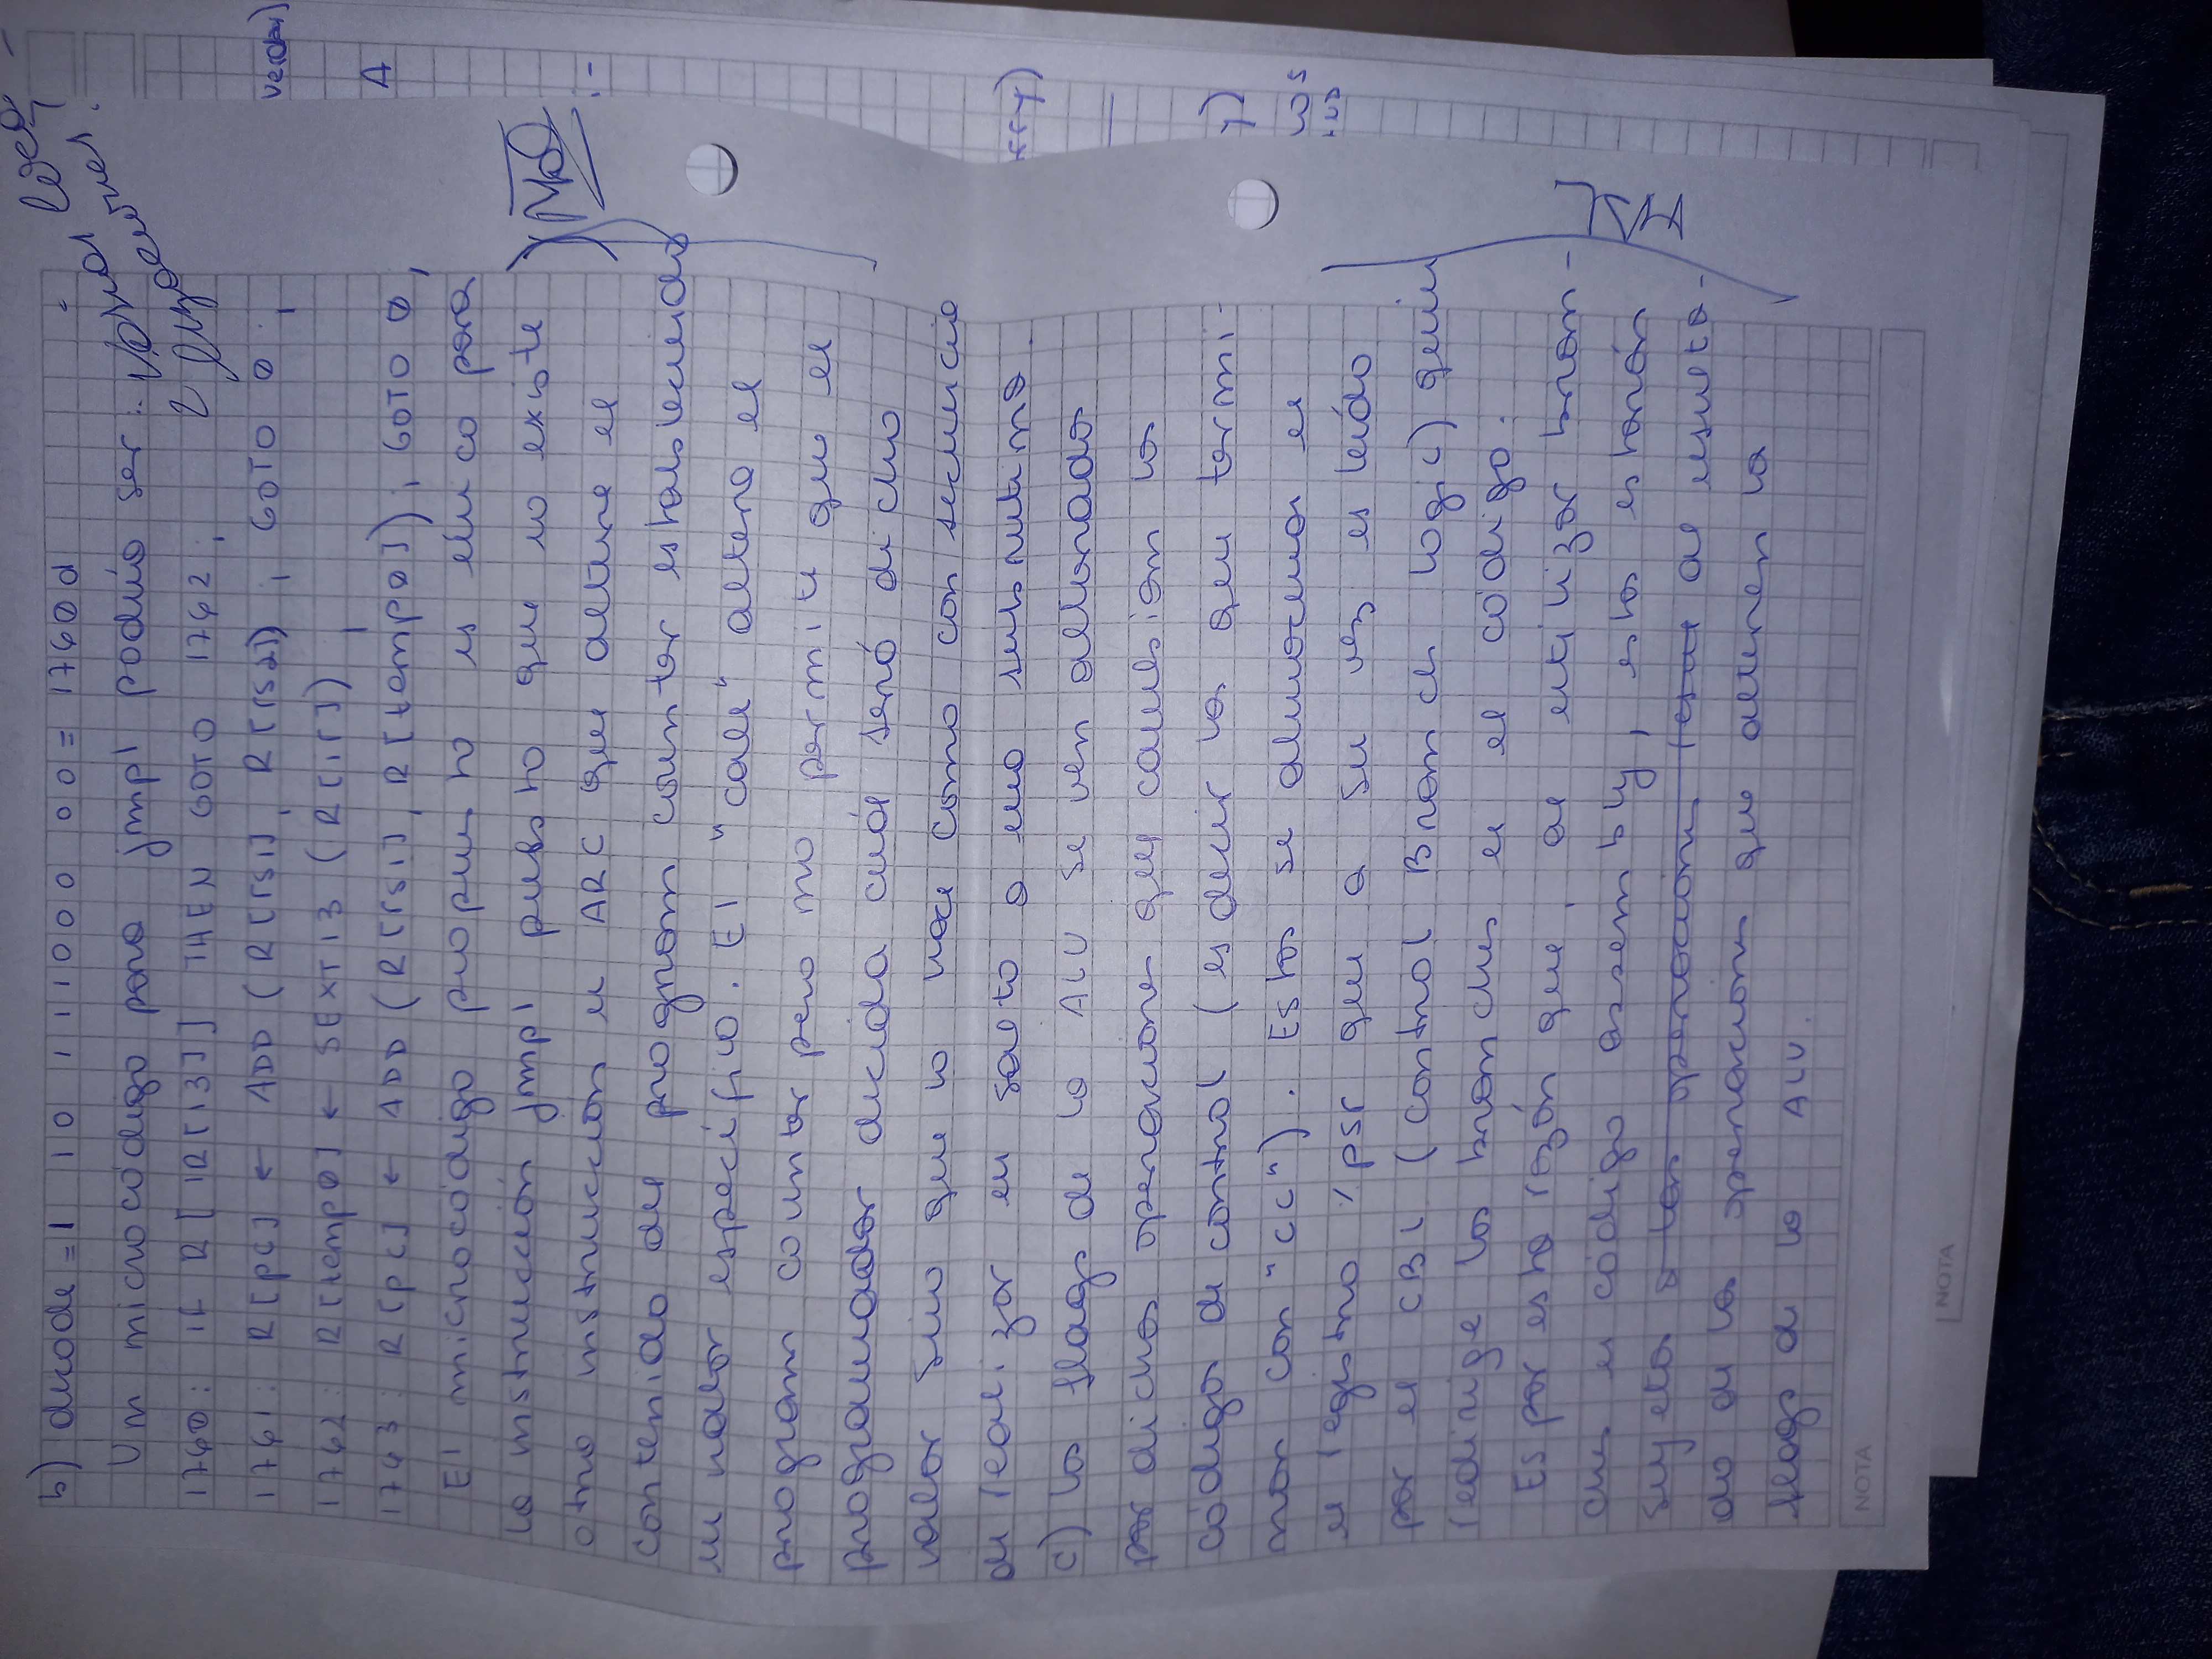 b) decode = 1 10 111000 00 = 1760d
Un microcódigo para jmpl podría ser:
1760: IF R[IR[13]] THEN GOTO 1762;
1761: R[pc] ← ADD (R[rs1], R[rs2]); GOTO 0;
1762: R[temp0] ← SEXT13 (R[ir]);
1763: R[pc] ← ADD (R[rs1], R[temp0]); GOTO 0;
El microcódigo propuesto es único para
la instrucción jmpl puesto que no existe
otra instrucción en ARC que altere el
contenido del program counter estableciendo
un valor específico. El "call" altera el
program counter pero no permite que el
programador decida cuál será dicho
valor sino que lo hace como consecuencia
de realizar un salto a una subrutina.
c) Los flags de la ALU se ven alterados
por dichas operaciones que cambian los
códigos de control (es decir las que termi-
nan con "cc"). Estos se almacenan en
el registro %psr que a su vez es leído
por el CBL (Control Branch Logic) quien
redirige los branches en el código.
Es por esta razón que, al utilizar bran-
ches en código assembly, estos estarán
sujetos a las operaciones al resulta-
do de las operaciones que alteren los
flags de la ALU.
¿varias
Mal
verdas)
A
rry)
los
NOTA
NOTA